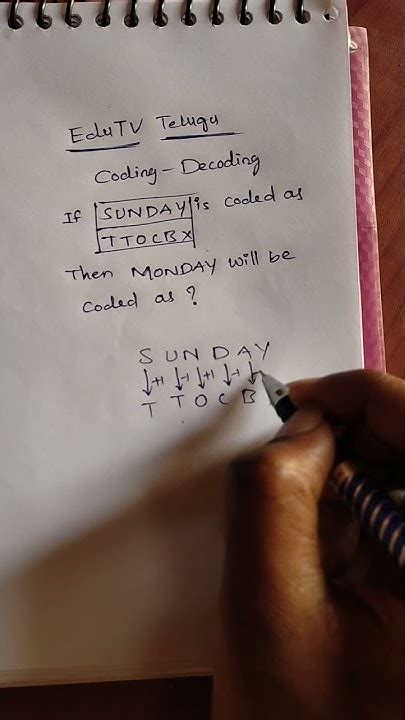 EduTV Telugu
Coding - Decoding
If SUNDAY is coded as
TTOCBX
Then MONDAY will be
coded as ?
S U N D A Y
+1 -1 +1 -1
T T O C B